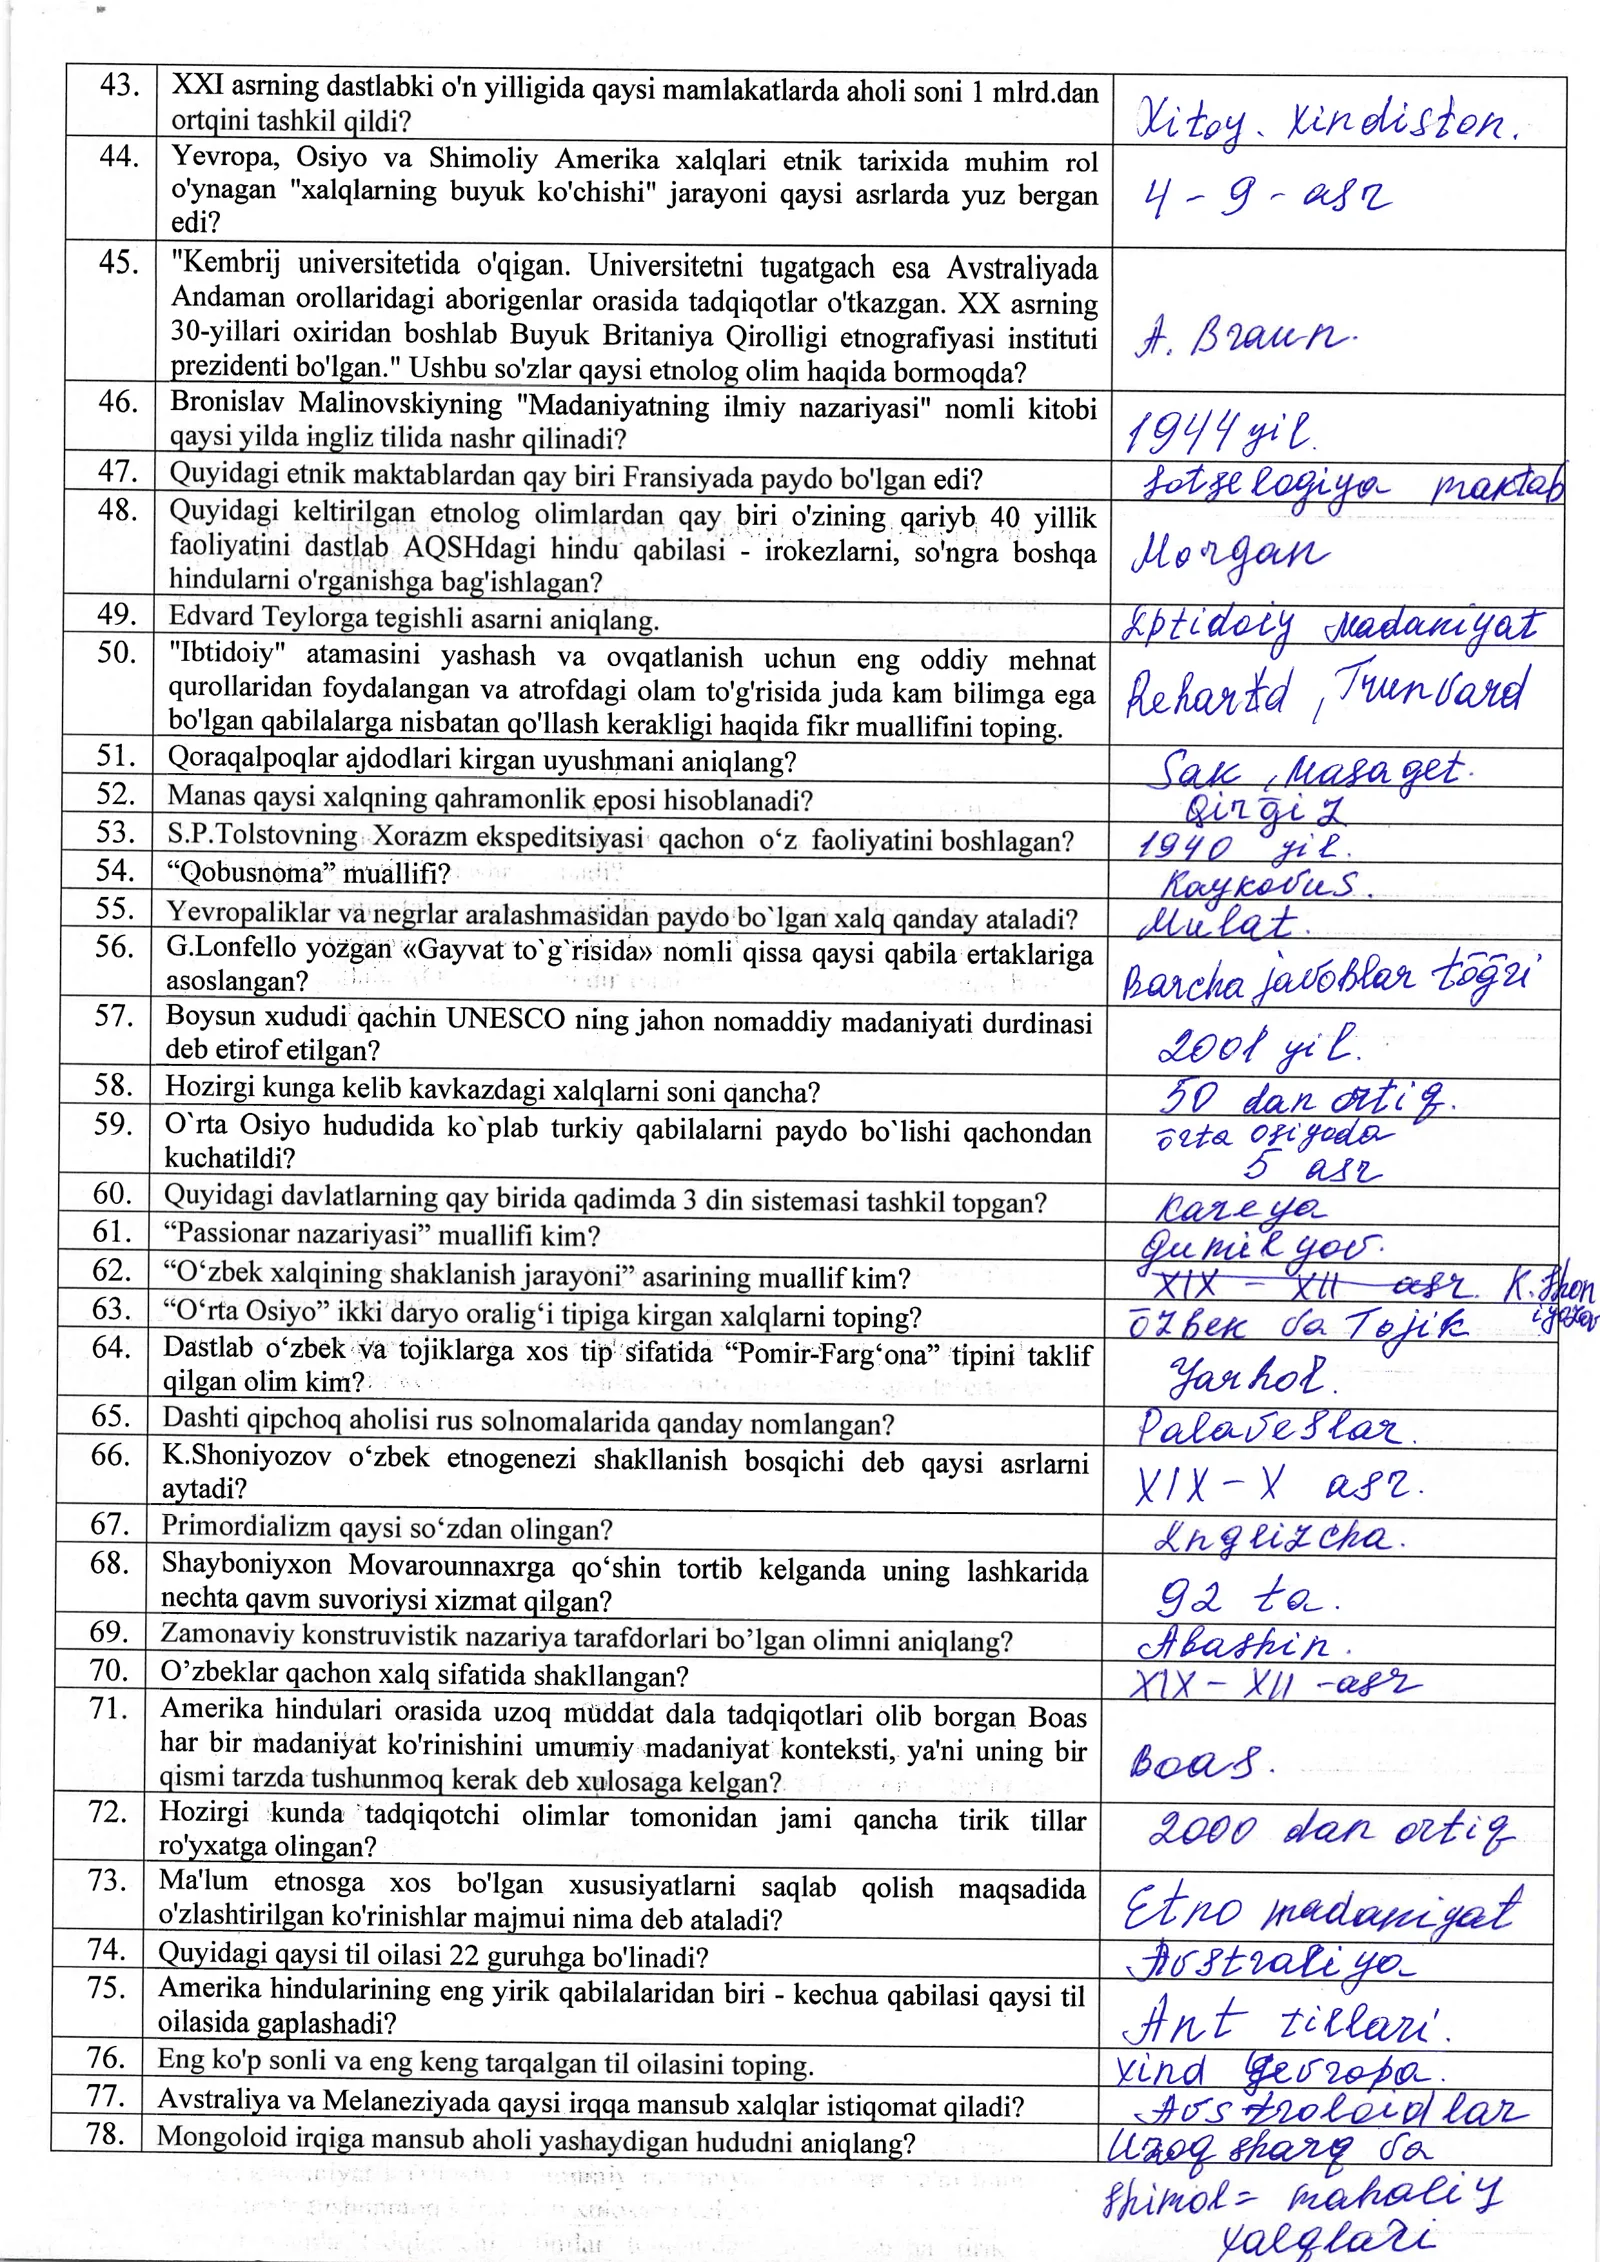 43. XXI asrning dastlabki o'n yilligida qaysi mamlakatlarda aholi soni 1 mlrd.dan
ortqini tashkil qildi?
Xitoy. Xindiston.
44. Yevropa, Osiyo va Shimoliy Amerika xalqlari etnik tarixida muhim rol
o'ynagan "xalqlarning buyuk ko'chishi" jarayoni qaysi asrlarda yuz bergan
edi?
4 - 9 - asr
45. "Kembrij universitetida o'qigan. Universitetni tugatgach esa Avstraliyada
Andaman orollaridagi aborigenlar orasida tadqiqotlar o'tkazgan. XX asrning
30-yillari oxiridan boshlab Buyuk Britaniya Qirolligi etnografiyasi instituti
prezidenti bo'lgan." Ushbu so'zlar qaysi etnolog olim haqida bormoqda?
A. Braun.
46. Bronislav Malinovskiyning "Madaniyatning ilmiy nazariyasi" nomli kitobi
qaysi yilda ingliz tilida nashr qilinadi?
1944 yil.
47. Quyidagi etnik maktablardan qay biri Fransiyada paydo bo'lgan edi?
maktab
48. Quyidagi keltirilgan etnolog olimlardan qay biri o'zining qariyb 40 yillik
faoliyatini dastlab AQSHdagi hindu qabilasi - irokezlarni, so'ngra boshqa
hindularni o'rganishga bag'ishlagan?
Morgan
49. Edvard Teylorga tegishli asarni aniqlang.
Iptidoiy Madaniyat
50. "Ibtidoiy" atamasini yashash va ovqatlanish uchun eng oddiy mehnat
qurollaridan foydalangan va atrofdagi olam to'g'risida juda kam bilimga ega
bo'lgan qabilalarga nisbatan qo'llash kerakligi haqida fikr muallifini toping.
51. Qoraqalpoqlar ajdodlari kirgan uyushmani aniqlang?
Sak, Masaget.
52. Manas qaysi xalqning qahramonlik eposi hisoblanadi?
Qirg̃iz
53. S.P.Tolstovning Xorazm ekspeditsiyasi qachon o‘z faoliyatini boshlagan?
1940 yil.
54. “Qobusnoma” muallifi?
Kaykovus.
55. Yevropaliklar va negrlar aralashmasidan paydo bo`lgan xalq qanday ataladi?
Mulat.
56. G.Lonfello yozgan «Gayvat to`g`risida» nomli qissa qaysi qabila ertaklariga
asoslangan?
Barcha javoblar tõg̃ri
57. Boysun xududi qachin UNESCO ning jahon nomaddiy madaniyati durdinasi
deb etirof etilgan?
2001 yil.
58. Hozirgi kunga kelib kavkazdagi xalqlarni soni qancha?
50 dan ortiq.
59. O`rta Osiyo hududida ko`plab turkiy qabilalarni paydo bo`lishi qachondan
kuchatildi?
õrta osiyoda
5 asr
60. Quyidagi davlatlarning qay birida qadimda 3 din sistemasi tashkil topgan?
Kareya
61. “Passionar nazariyasi” muallifi kim?
Gumilyov.
62. “O‘zbek xalqining shaklanish jarayoni” asarining muallif kim?
XIX - XII asr. K. Shon
iyozov
63. “O‘rta Osiyo” ikki daryo oralig‘i tipiga kirgan xalqlarni toping?
õzbek va Tojik
64. Dastlab o‘zbek va tojiklarga xos tip sifatida “Pomir-Farg‘ona” tipini taklif
qilgan olim kim?
Yarhol.
65. Dashti qipchoq aholisi rus solnomalarida qanday nomlangan?
Palaveslar.
66. K.Shoniyozov o‘zbek etnogenezi shakllanish bosqichi deb qaysi asrlarni
aytadi?
XIX - X asr.
67. Primordializm qaysi so‘zdan olingan?
Inglizcha.
68. Shayboniyxon Movarounnaxrga qo‘shin tortib kelganda uning lashkarida
nechta qavm suvoriysi xizmat qilgan?
92 ta.
69. Zamonaviy konstruvistik nazariya tarafdorlari bo’lgan olimni aniqlang?
Abashin.
70. O’zbeklar qachon xalq sifatida shakllangan?
XIX - XII - asr
71. Amerika hindulari orasida uzoq muddat dala tadqiqotlari olib borgan Boas
har bir madaniyat ko'rinishini umumiy madaniyat konteksti, ya'ni uning bir
qismi tarzda tushunmoq kerak deb xulosaga kelgan?
Boas.
72. Hozirgi kunda tadqiqotchi olimlar tomonidan jami qancha tirik tillar
ro'yxatga olingan?
2000 dan ortiq
73. Ma'lum etnosga xos bo'lgan xususiyatlarni saqlab qolish maqsadida
o'zlashtirilgan ko'rinishlar majmui nima deb ataladi?
Etno madaniyat
74. Quyidagi qaysi til oilasi 22 guruhga bo'linadi?
Avstraliya
75. Amerika hindularining eng yirik qabilalaridan biri - kechua qabilasi qaysi til
oilasida gaplashadi?
Ant tillari.
76. Eng ko'p sonli va eng keng tarqalgan til oilasini toping.
Xind yevropa.
77. Avstraliya va Melaneziyada qaysi irqqa mansub xalqlar istiqomat qiladi?
Avstroloidlar
78. Mongoloid irqiga mansub aholi yashaydigan hududni aniqlang?
Uzoq sharq va
shimol = mahaliy
xalqlari